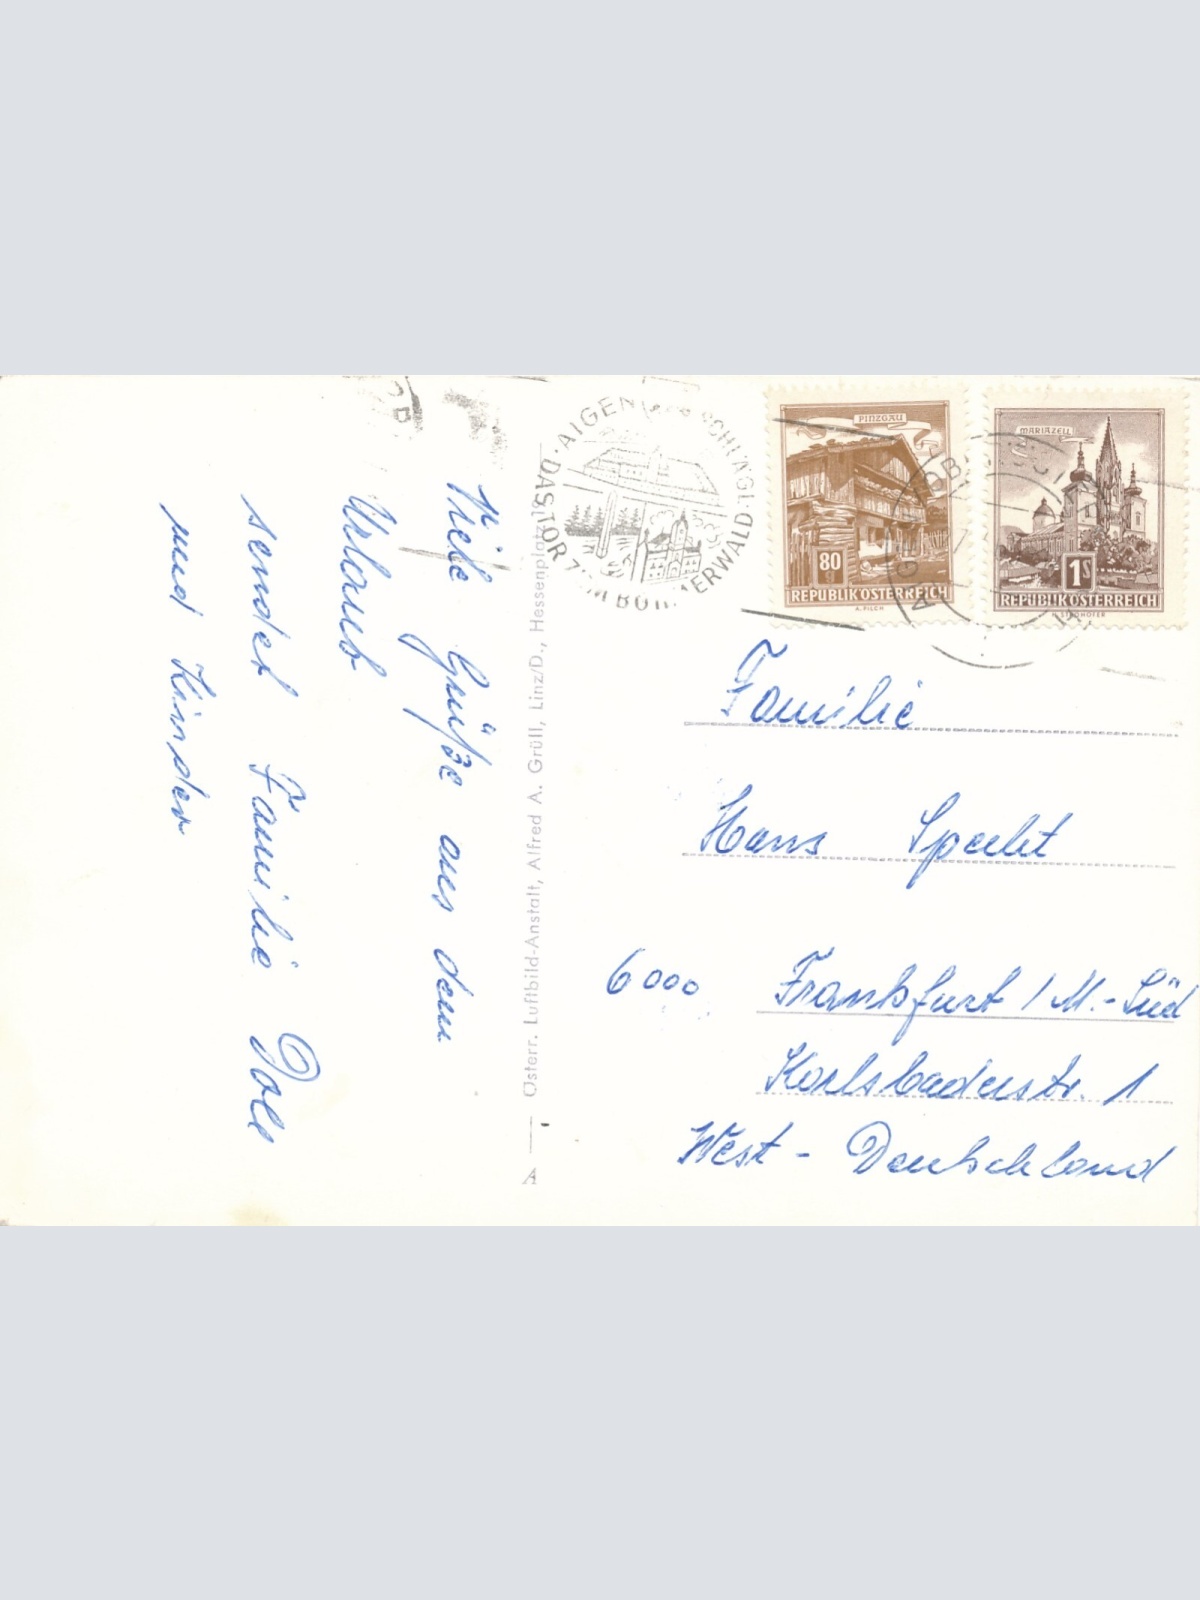 Viele Grüße aus dem
Urlaub
sendet Familie Doll
und Kinder
Österr. Luftbild-Anstalt, Alfred A. Grüll, Linz/D., Hessenplatz
A
AIGEN
DAS TOR ZUM BÖHMERWALD
PINZGAU
80
REPUBLIK ÖSTERREICH
A. PILCH
MARIAZELL
1S
REPUBLIK ÖSTERREICH
Familie
Hans Specht
6000 Frankfurt / M.-Süd
Karlsbaderstr. 1
West-Deutschland